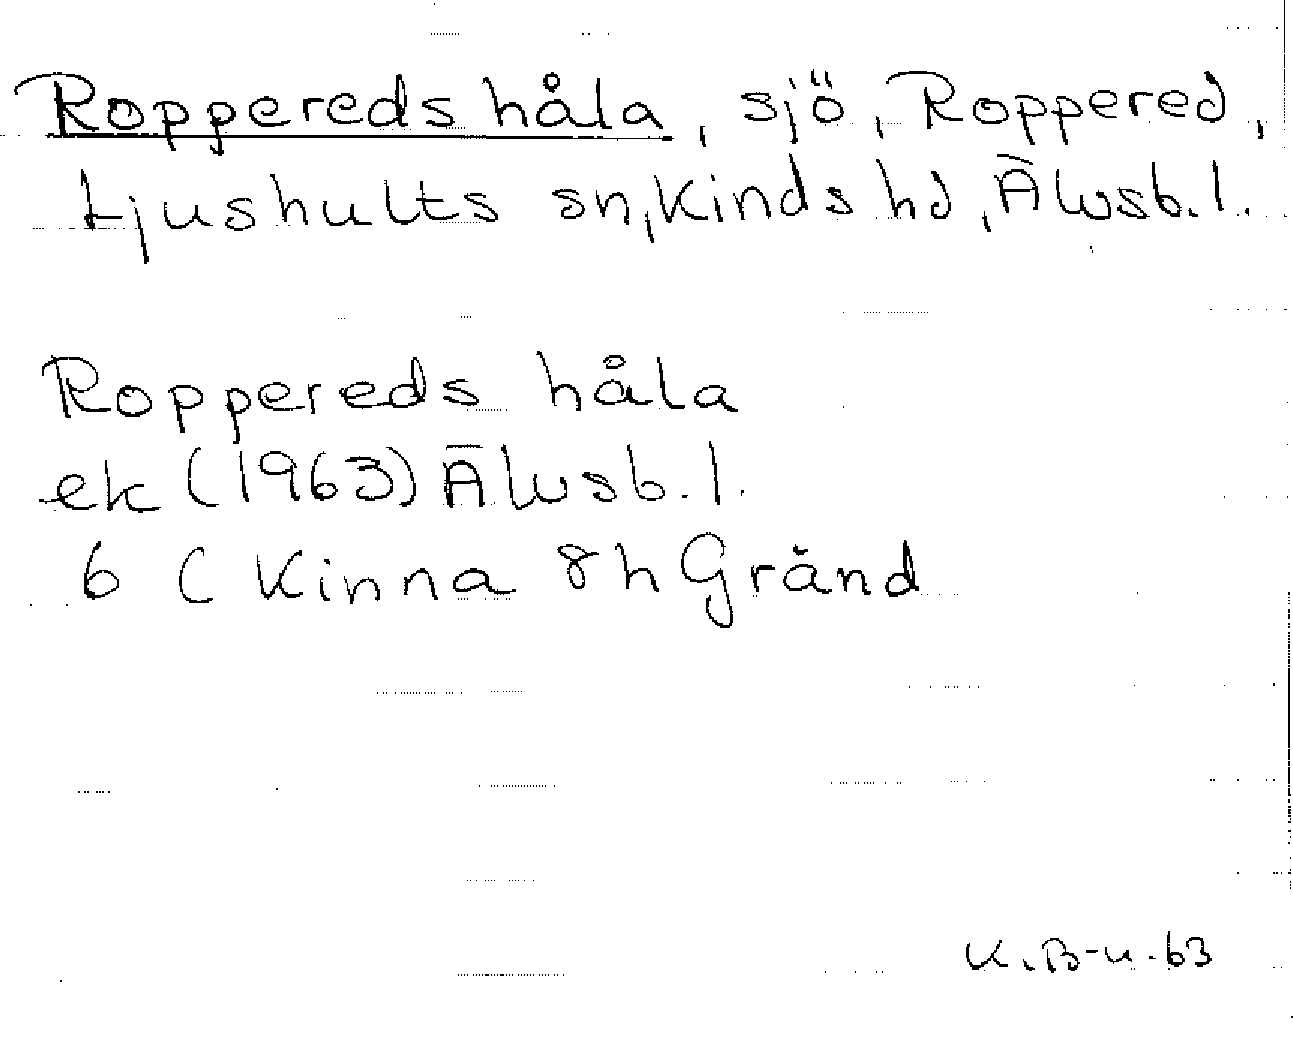 Roppereds håla, sjö, Roppered,
Ljushults sn, Kinds hd, Älvsb. l.
Roppereds håla
ek (1963) Älvsb. l.
6 ( Kinna 8h Gränd
K. B-n. 63